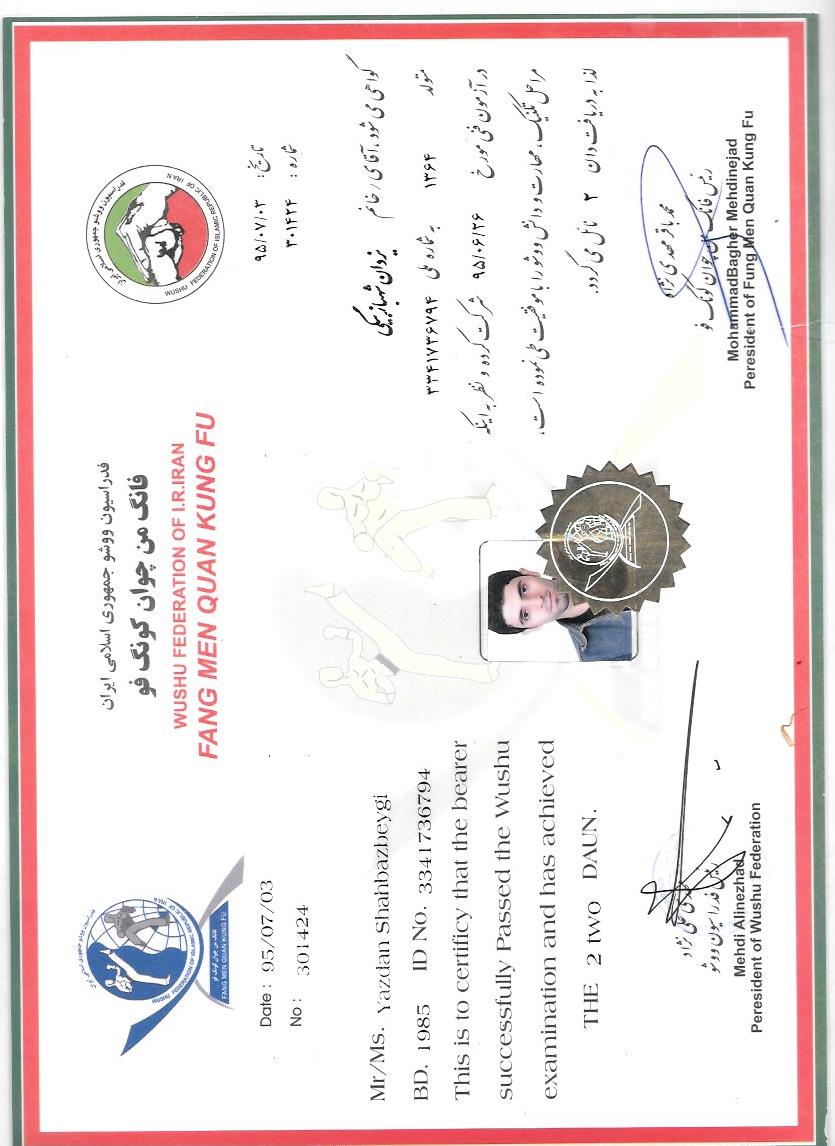 فدراسیون ووشو جمهوری اسلامی ایران
فانگ من چوان کونگ فو
WUSHU FEDERATION OF I.R.IRAN
FANG MEN QUAN KUNG FU
فدراسیون ووشو جمهوری اسلامی ایران
WUSHU FEDERATION OF ISLAMIC REPUBLIC OF IRAN
فانگ من چوان کونگ فو
FANG MEN QUAN KUNG FU
فدراسیون ووشو جمهوری اسلامی ایران
WUSHU FEDERATION OF ISLAMIC REPUBLIC OF IRAN
Date : 95/07/03
No : 301424
Mr/Ms. Yazdan Shahbazbeygi
BD. 1985 ID No. 3341736794
This is to certificy that the bearer
successfully Passed the Wushu
examination and has achieved
THE 2 two DAUN.
تاریخ : ۹۵/۰۷/۰۳
شماره : ۳۰۱۴۲۴
گواهی می شود، آقای / خانم یزدان شهبازبیگی
متولد ۱۳۶۴ به شماره ملی ۳۳۴۱۷۳۶۷۹۴
در آزمون فنی مورخ ۹۵/۰۶/۲۶ شرکت کرده و نظر به اینکه
مراحل تکنیک، مهارت و دانش ووشو را با موفقیت طی نموده است،
لذا به دریافت دان ۲ نائل می گردد.
مهدی علی نژاد
رئیس فدراسیون ووشو
Mehdi Alinezhad
Peresident of Wushu Federation
محمد باقر مهدی نژاد
رئیس فانگ من چوان کونگ فو
MohammadBagher Mehdinejad
Peresident of Fung Men Quan Kung Fu